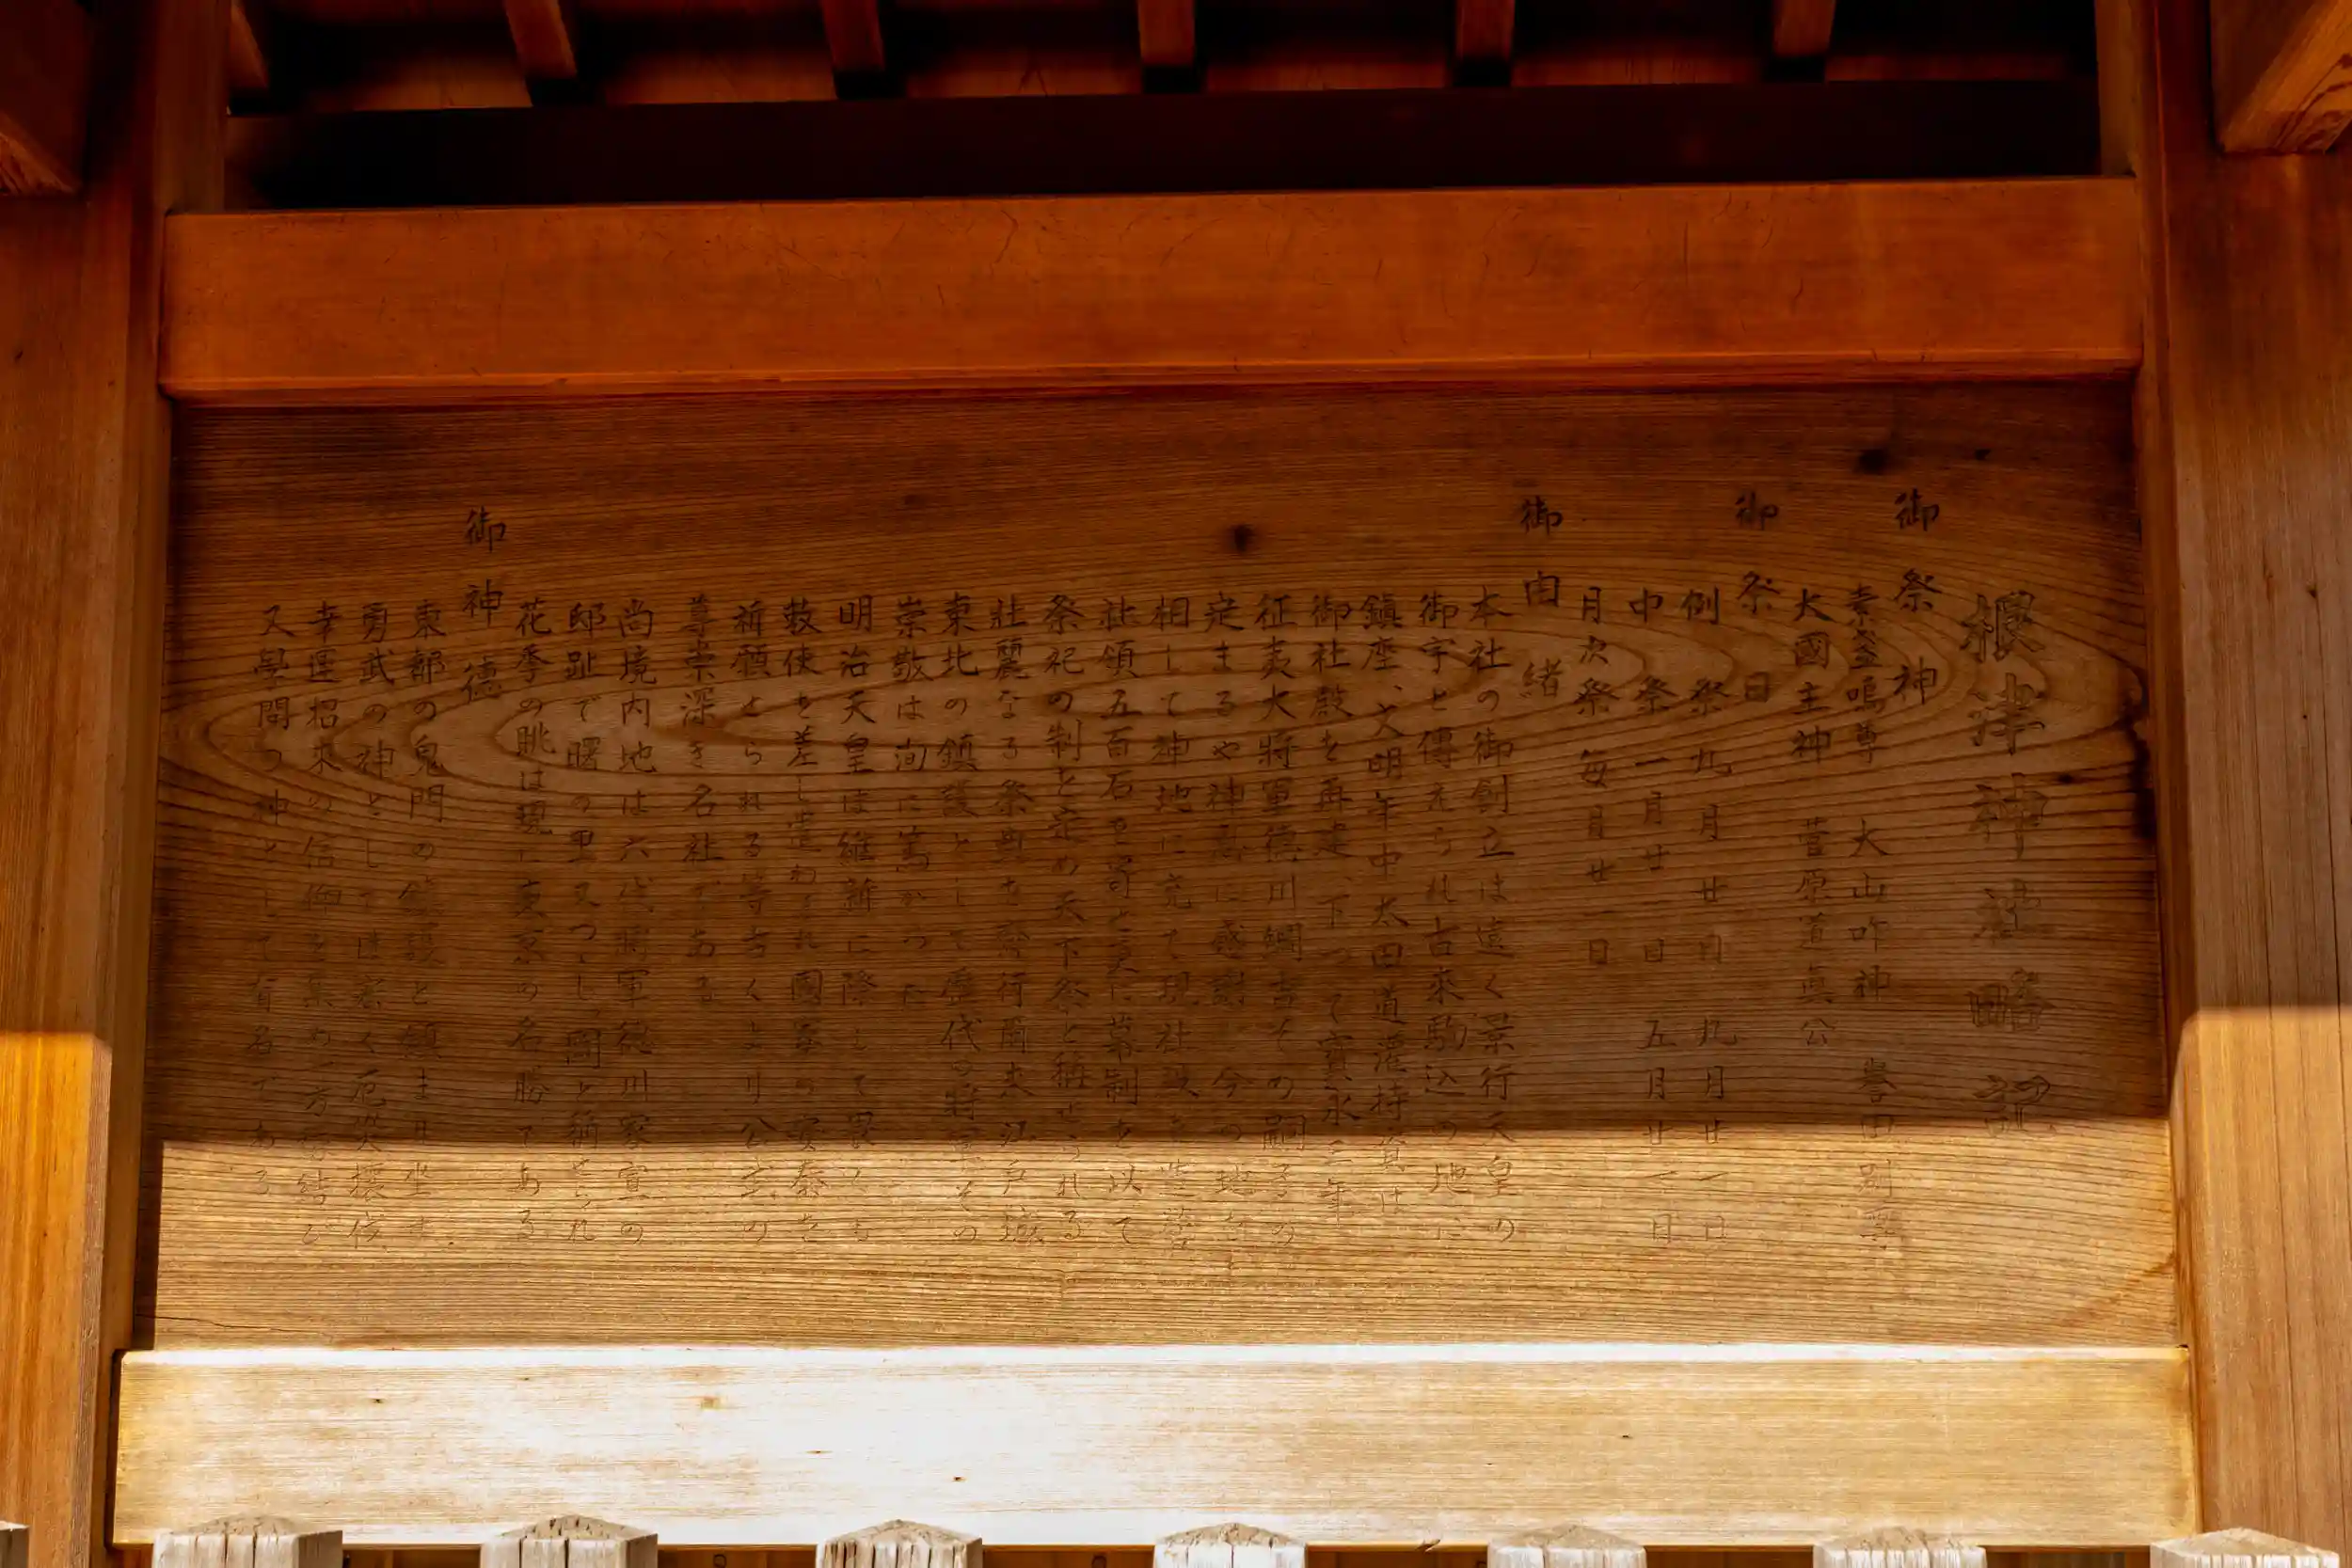 根津神社略記
御祭神
素盞嗚尊 大山咋神 誉田別尊
大國主神 菅原道真公
御祭日
例祭 九月廿日 九月廿一日
中祭 一月廿一日 五月廿一日
月次祭 毎月廿一日
御由緒
本社の御創立は遠く景行天皇の
御宇と傳えられ古來駒込の地に
鎮座、文明年中太田道灌持資は
御社殿を再建、下つて寳永三年
征夷大將軍德川綱吉その嗣子の
定まるや神恩に感謝 今の地を
相して神地に充て現社殿を造營
社領五百石を寄せ更に幕制を以て
祭祀の制を定め天下祭と稱せられる
壯麗なる祭典を齋行爾来江戸城
東北の鎮護として歴代の將軍その
崇敬は洵に篤かつた
明治天皇は維新に降して畏くも
敕使を差し遣わされ國家の安泰を
祈願せられる等古くより公武の
尊崇深き名社である
尚境内地は六代將軍德川家宣の
邸趾で曙の里又つつじヶ岡と稱せられ
花季の眺は現に東京の名勝である
御神德
東都の鬼門の鎮護と鎮ま里坐す
勇武の神としては密く厄災攘伏
幸運招來の信仰を集め一方縁結び
又學問の神として有名である